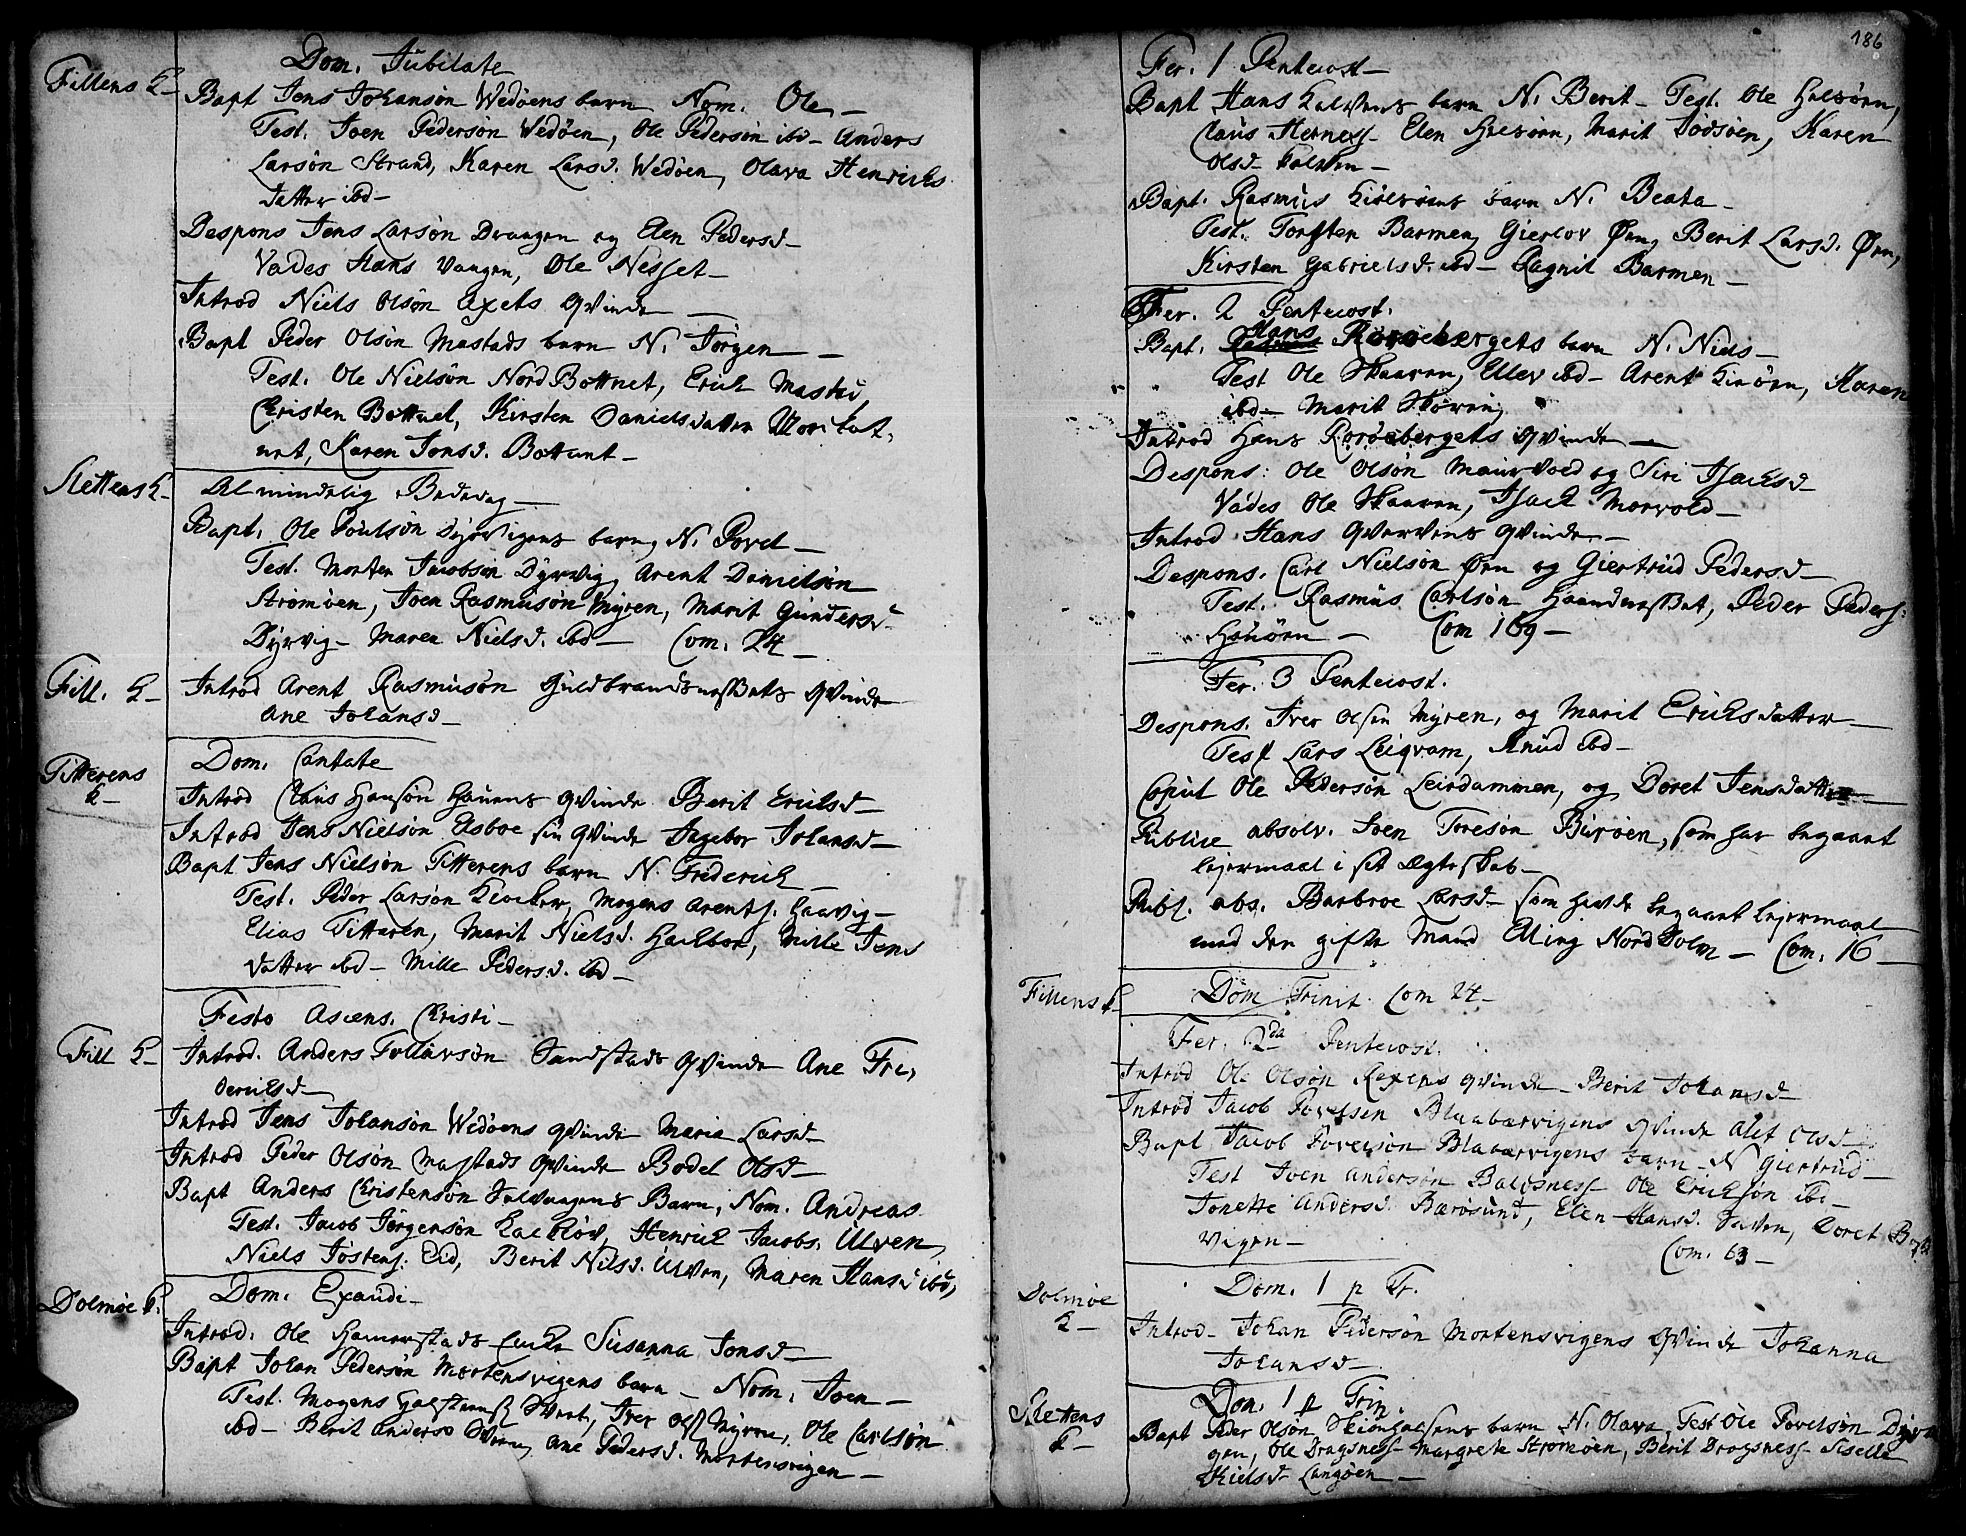 Dom. Jubilate
Fillens K–
Bapt Jens Johansøn Wedøens barn Nom. Ole –
Test. Joen Pedersøn Wedøen, Ole Pedersøn ibd – Anders
Larsøn Strand, Karen Larsd. Wedøen, Olava Henrichs
datter ibd –
Despons Jens Larsøn Dvangen og Elen Pedersd –
Vades Hans Vaagen, Ole Nesset –
Introd Niels Olsøn Axets Qvinde –
Bapt Peder Olsøn Mastads barn N. Jørgen –
Test. Ole Nielsøn Nord Bottnet, Erich Mastad,
Christen Bottnet, Kirsten Danielsdatter
net, Karen Jonsd. Bottnet –
Slettens K–
Almindelig Bededag –
Bapt. Ole Poulsøn Dyrvigens barn, N. Povel –
Test. Morten Jacobsøn Dyrvig, Arent Danielsøn
Strømøen, Joen Rasmusøn Myren, Marit Gundersd
Dyrvig – Maren Nielsd. ibd – Com. 24 –
Fill. K–
Introd Arent Rasmusøn Guldbrandsnessets Qvinde
Ane Johansd –
Dom. Cantate
Titterens
K–
Introd Claus Hansøn Hauens Qvinde Berit Erichsd –
Introd Jens Nielsøn Elsboe sin Qvinde Ingebor Johansd –
Bapt Jens Nielsøn Titterens barn N. Friderich –
Test. Peder Larsøn Klocker, Mogens Arentz. Haavig –
Elias Titteren, Marit Nielsd. Hachboe, Mille Jens
datter ibd – Mille Pedersd. ibd –
Festo Ascens. Christi –
Fill K–
Introd. Anders Tollavsøn Sandstads Qvinde Ane Fri,
derichsd –
Introd Jens Johansøn Wedøens Qvinde Maria Larsd –
Introd Peder Olsøn Mastads Qvinde Bodel Olsd –
Bapt Anders Christensøn Barn, Nom. Andreas
Test. Jacob Jørgensøn, Henrich Jacobs. Ulven,
Niels Jostens: Eid, Berit Nilsd. Ulven, Maren Hansd ibd,
Dolmøe K.
Dom. Exaudi –
Introd. Ole Hamerstads Enche Susanna Jonsd –
Bapt Johan Pedersøn Mortensvigens barn – Nom. Joen –
Test. Mogens, Iver Ols Myren, Ole Carlsøn
ibd – Berit Anders, Ane Pedersd. Mortensvigen –
186
Fer. 1 Pentecost –
Bapt Hans Kalvens barn N. Berit – Test. Ole,
Claus Hernes – Elen, Marit Dødsøen, Karen
Olsd Kalven –
Bapt. Rasmus barn N. Beata –
Test. Torsten Barmen, Gierlov Ørn, Berit Larsd. Ørn,
Kirsten Gabrielsd. ibd – Ragnil Barmen –
Fer. 2 Pentecost.
Bapt. Hans Rorøebergets barn N. Niels –
Test Ole Skaaren, Ellev ibd – Arent, Karen
ibd – Marit
Introd Hans Rorøebergets Qvinde –
Despons: Ole Olsøn og Siri Isachsd –
Vades Ole Skaaren, Isach Morvold –
Introd Hans Qvinde –
Despons. Carl Nielsøn Ørn og Giertrud Pedersd –
Test. Rasmus Carlsøn, Peder Peders:
– Com 169 –
Fer. 3 Pentecost.
Despons. Iver Olsen Myren, og Marit Erichsdatter –
Test Lars Leiqvam, Knud ibd –
Copul Ole Pedersøn Leirdammen, og Doret Jensdatter –
Publice absolv. Joen Toresøn Burøen, som har begaaet
lejermaal i sit Ægteskab –
Publ. abs. Barbroe Larsd – som havde begaaet lejermaal
med den gifte Mand Elling Nordholm – Com. 16 –
Fillens K–
Dom Trinit. Com 24 –
Fer. 2da Pentecost.
Introd Ole Olsøn Rexens Qvinde – Berit Johansd –
Introd Jacob Povelsen Blaabærvigens Qvinde Alet Olsd –
Bapt Jacob Povelsøn Blabærvigens barn – N Giertrud –
Test Joen Andersøn Baldsness – Ole Erichsøn ibd –
Jonette Andersd. Bærøsund, Elen Hansd., Doret
vigen – Com. 63 –
Dolmøe
K–
Dom. 1 p Tr.
Introd – Johan Pedersøn Mortensvigens Qvinde Johanna
Johansd –
Slettens
K–
Dom. 1 p Trin.
Bapt Peder Olsøn barn N. Olava, Test Ole Povelsøn
gen, Ole Dragsness – Margrete Strømøen, Berit Dragsness – Siselle
Nielsd – Langøen –